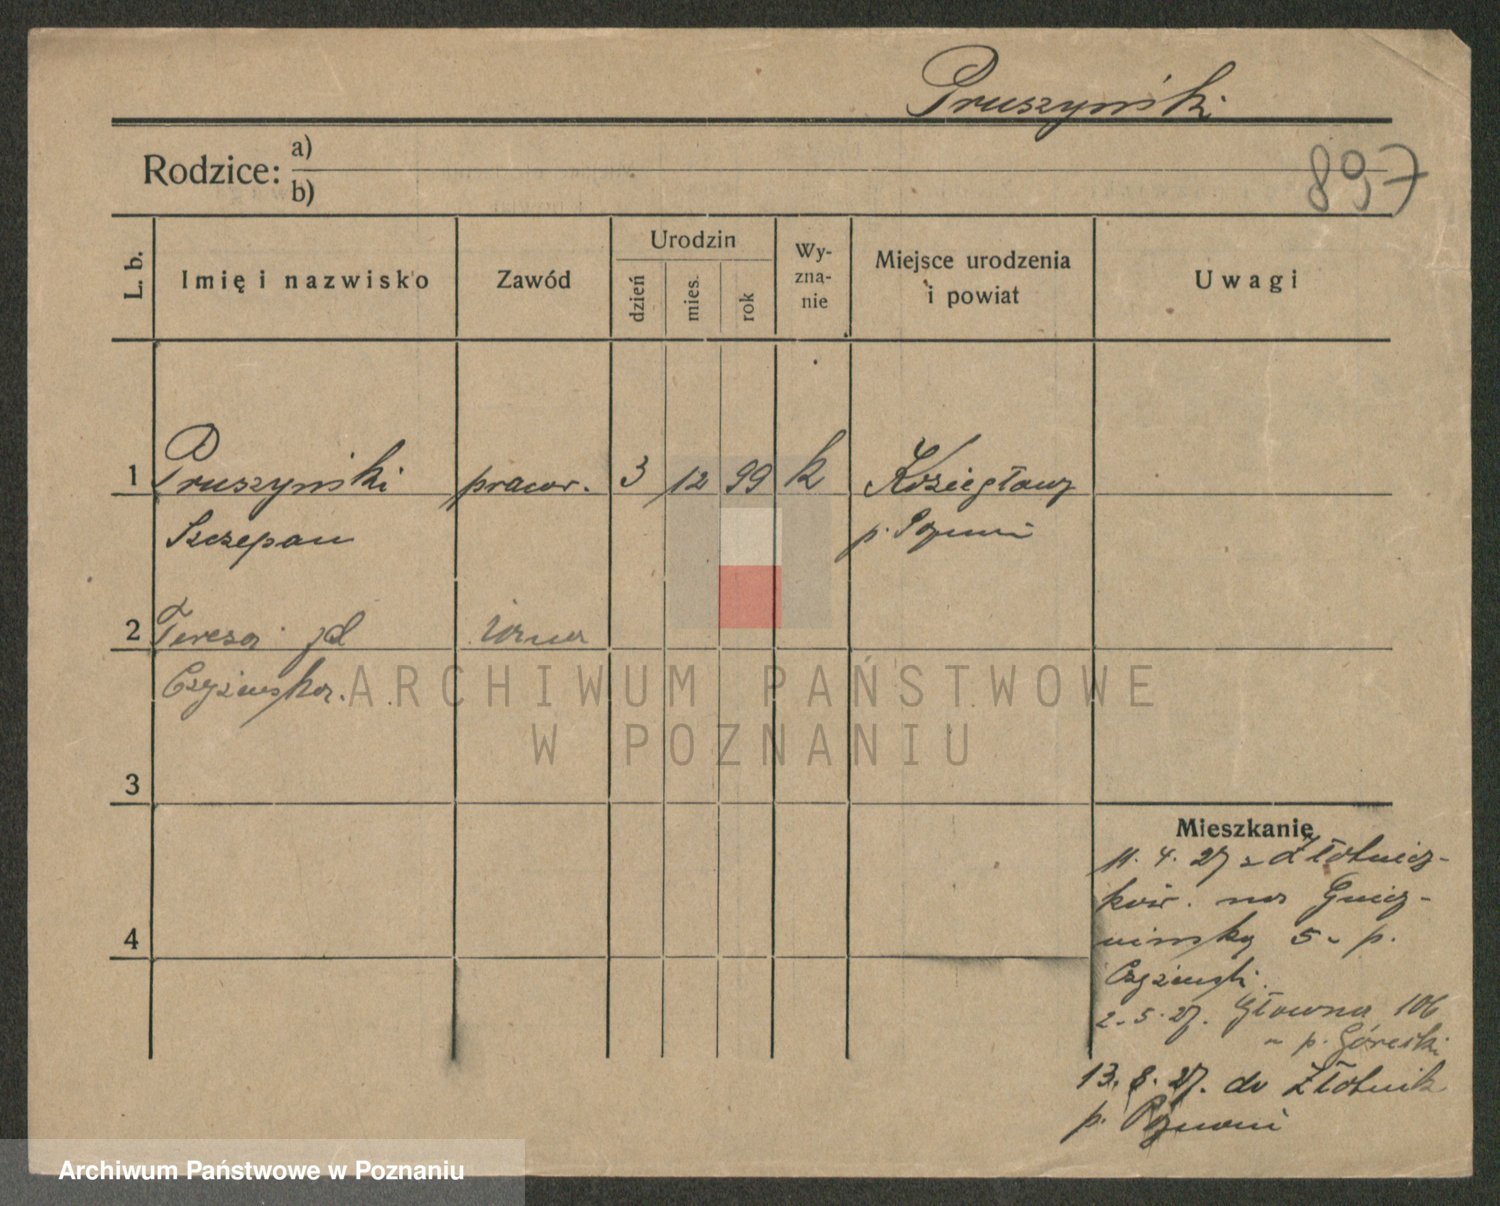 Pruszyński
897
Rodzice: a)
b)
L. b.
Imię i nazwisko
Zawód
Urodzin
dzień
mies.
rok
Wy-
zna-
nie
Miejsce urodzenia
i powiat
Uwagi
1 Pruszyński pracow. 3 12 99 k Koziegłowy
Szczepan p. Poznań
2 Teresa
Czyżewska.
ARCHIWUM PAŃSTWOWE
W POZNANIU
3
Mieszkanie
11. 4. 27 z Złotnicz-
4
ków. na Gniez-
nińską 5 - p.
Czyżewski.
2. 5. 27. Główna 106
p. Górecki
13. 8. 27. do Złotnik
p. Poznań
Archiwum Państwowe w Poznaniu